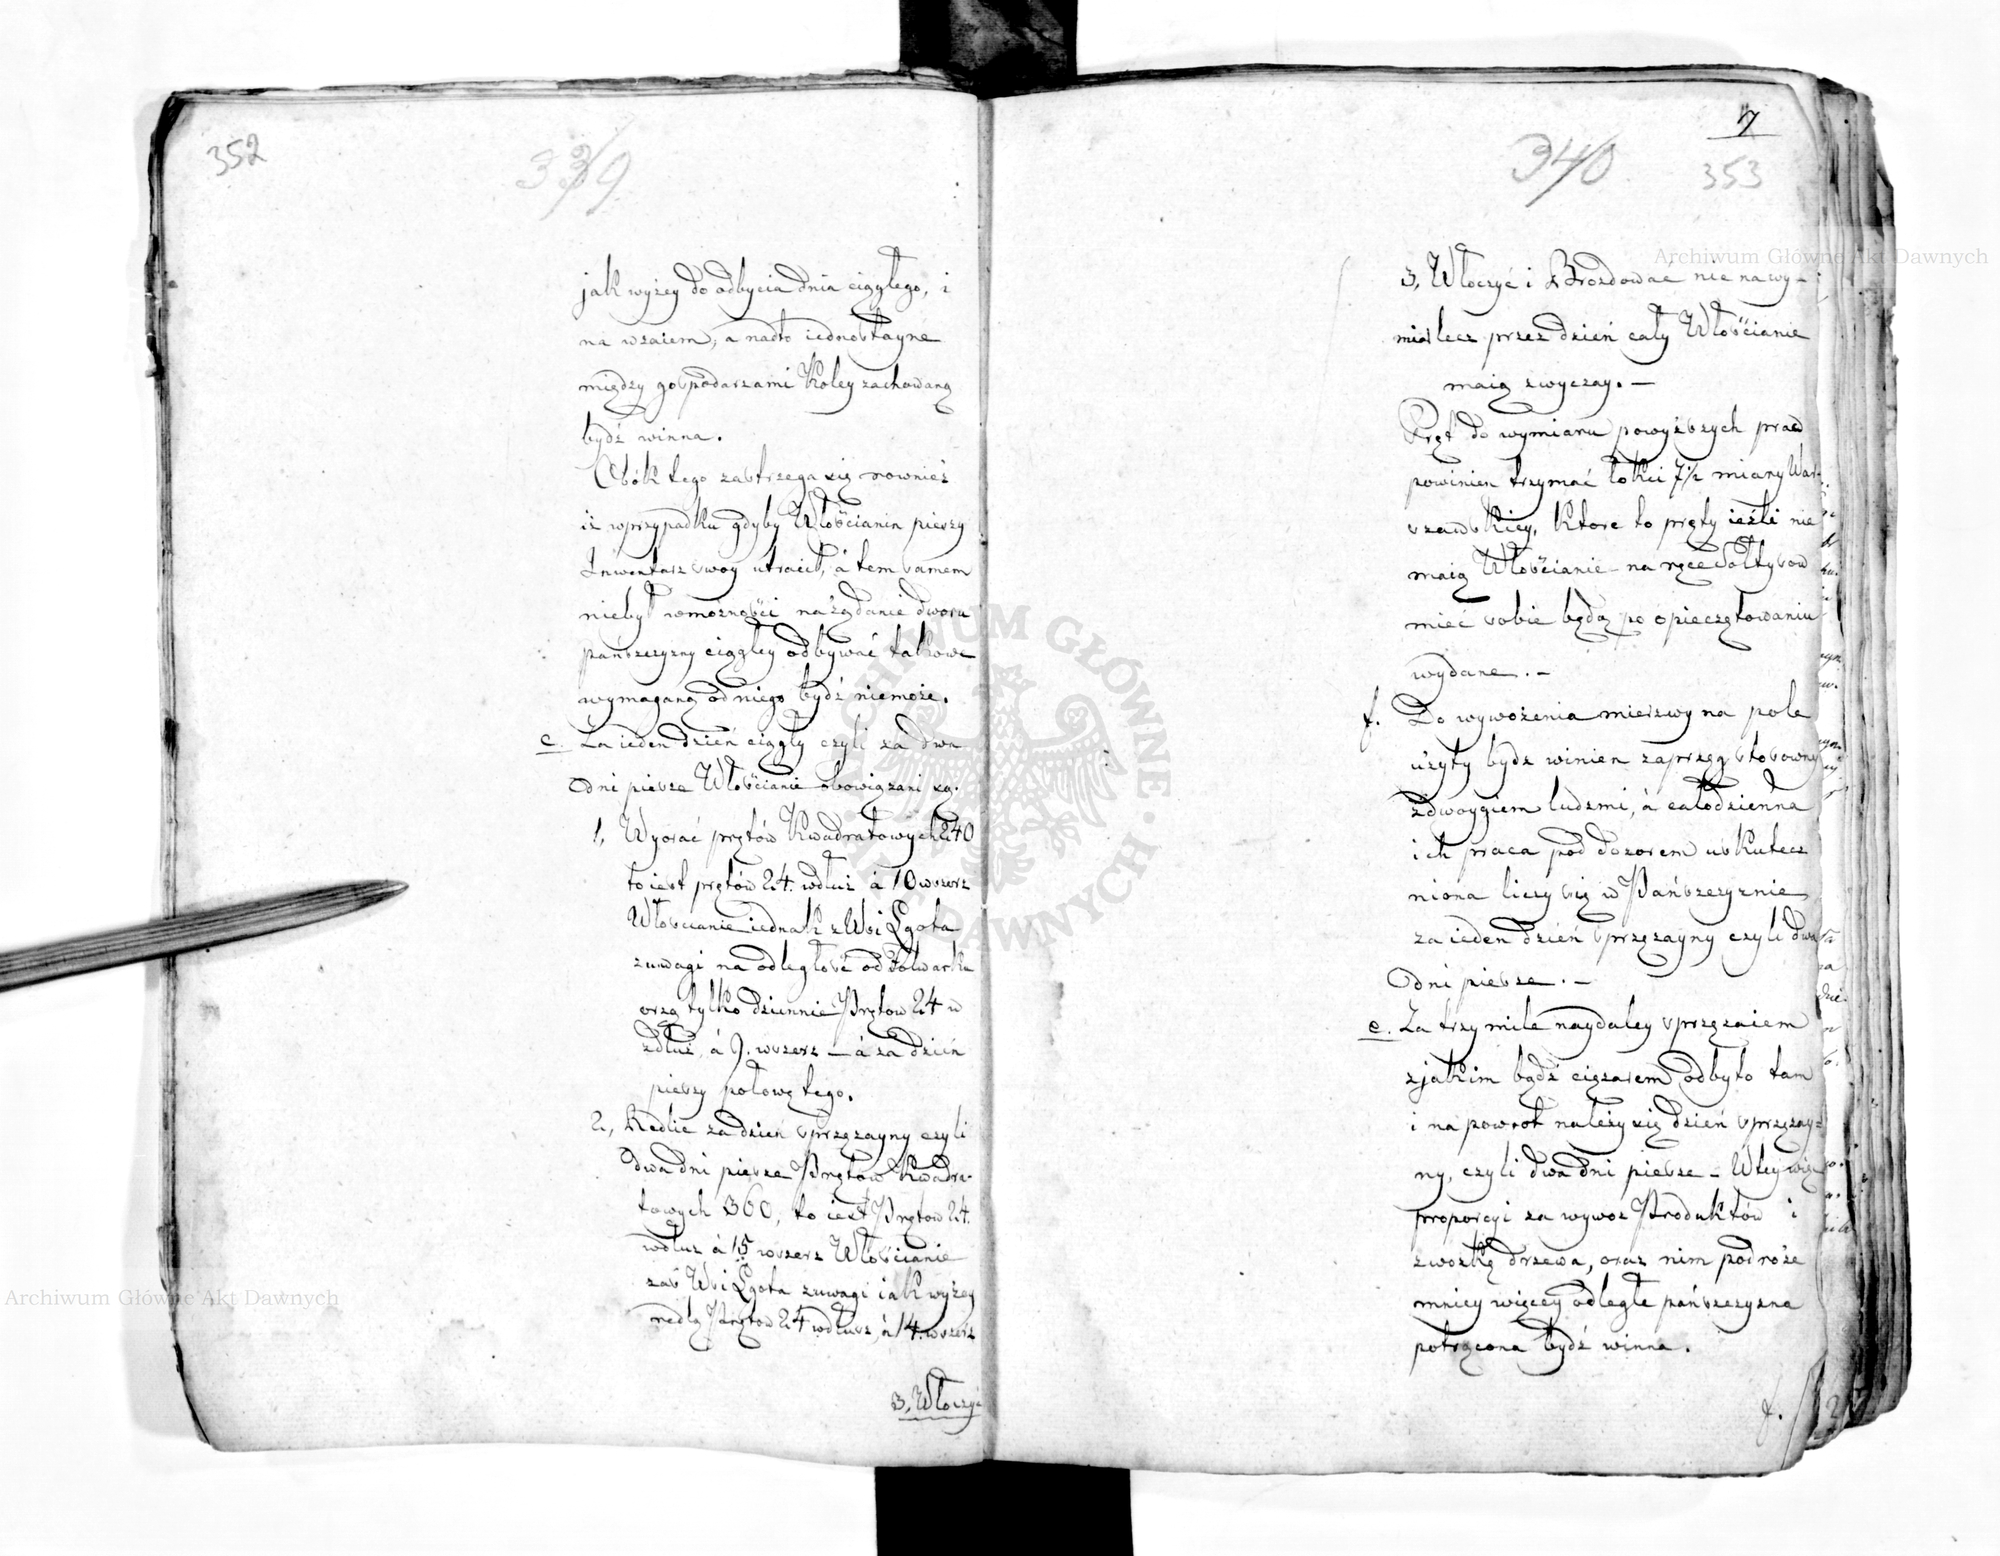 352
339
jak wyżey do odbycia dnia ciągłego, i
na wzaiem, a nadto iednostayne
między gospodarzami Koley zachowaną
bydź winna.
Obók tego zastrzega się rownież
iż wprzypadku gdyby Włościanin pieszy
Inwentarz swoy utracił, á tem samem
niebył wmożności na żądanie dworu
pańszczyzny ciągłey odbywać takowe
wymaganą od niego bydź niemoże.
c. Za ieden dzień ciągły czyli za dwa
dni piesze Włościanie obowiązani są.
1, Wyorać prętów Kwadratowych 240
to iest prętów 24. wdłuż á 10 wszerz
Włościanie iednak z Wsi Lgota
zuwagi na odległość od Folwarku
orzą tylko dziennie Prętow 24 w
zdłuż, á 9. wszerz – á za dzień
pieszy połowę tego.
2, Redlić za dzień sprzężayny czyli
dwa dni piesze Prętów Kwadra-
towych 360, to iest Prętow 24.
wdłuż á 15 wszerz Włościanie
zaś Wsi Lgota zuwagi iak wyżey
redlą Prętow 24 wdłusz, á 14. wszerz
3, Włoczyć
7
340
353
3, Włoczyć i Brozdować nie na wy-
miar lecz przez dzień cały Włościanie
maią zwyczay. –
Pręt do wymiaru powyższych prac
powinien trzymać łokci 7½ miary War-
szawskiey, Ktore to pręty ieżli nie
maią Włościanie na ręce Sołtysow
mieć sobie będą po opieczętowaniu
wydane. –
f. Do wywożenia mierzwy na pole
użyty bydz winien zaprzęg stosowny
zdwoygiem ludzmi, á całodzienna
ich praca pod dozorem uskutecz
niona liczy się w Pańszczyznie
za ieden dzień sprzężayny czyli dwa
dni piesze. –
e. Za trzy mile naydaley sprzężaiem
zjakim bądź ciężarem odbyto tam
i na powrot należy się dzień sprzężay-
ny, czyli dwa dni piesze – Wtey więc
proporcyi za wywoz Produktów i
zwozkę drzewa, oraz nim podróże
mniey więcey odległe pańszczyzna
potrącona bydź winna.
f.
Archiwum Główne Akt Dawnych
Archiwum Główne Akt Dawnych
ARCHIWUM GŁÓWNE AKT DAWNYCH